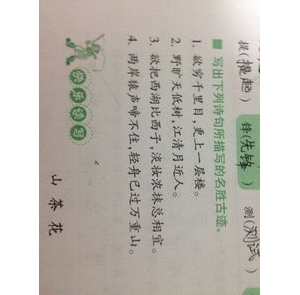 提(提起) 锋(先锋) 测(测试)
写出下列诗句所描写的名胜古迹。
1. 欲穷千里目,更上一层楼。
2. 野旷天低树,江清月近人。
3. 欲把西湖比西子,淡妆浓抹总相宜。
4. 两岸猿声啼不住,轻舟已过万重山。
快乐读写
山茶花